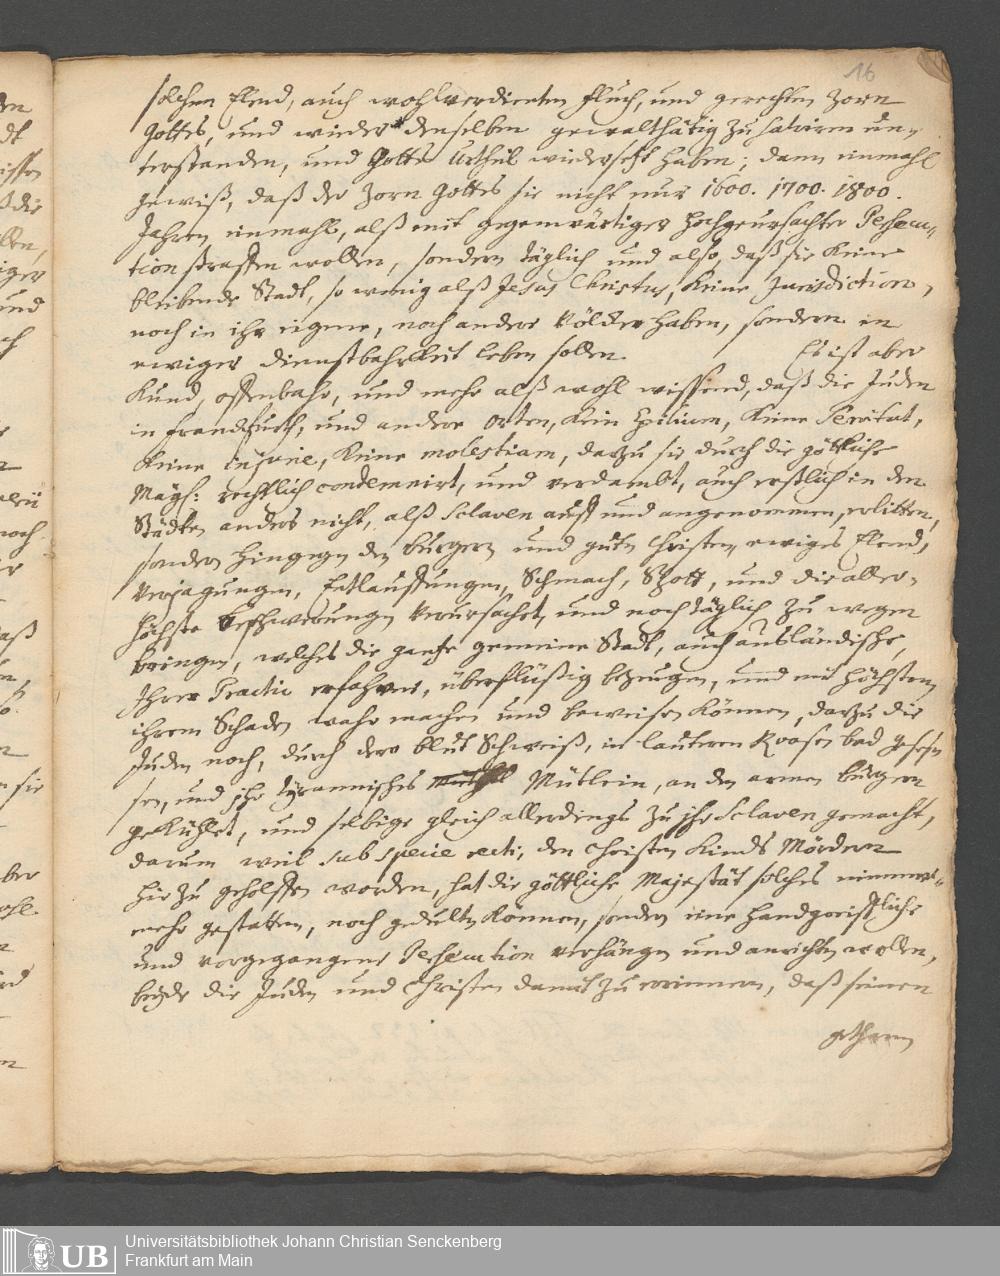 16
solchem Elend, auch wohlverdienten Fluch, und gerechten Zorn
Gottes, und wieder denselben gewalthätig zu salviren un-
terstanden, und Gottes Urtheil wiedersetzt haben; dann einmahl
gewiß, daß der Zorn Gottes sie nicht nur 1600. 1700. 1800.
Jahren einmahl, alß mit gegenwärtiger hochgeursachter Persecu-
tion straffen wollen, sondern täglich und also, daß sie keine
bleibende Stadt, so wenig alß Jesus Christus, keine Jurisdiction,
noch in ihr eigene, noch andere Völcker haben, sondern in
ewiger dienstbahrkeit leben sollen. Es ist aber
kund, offenbahr, und mehr alß wohl wissend, daß die Juden
in Franckfurth, und andere Orten, kein Exilium, keine Servitut,
keine Injurie, keine molestiam, darzu sie durch die göttliche
Mayst: rechtlich condemnirt, und verdambt, auch erstlich in den
Städten anders nicht, alß Sclaven auff und angenommen, erlitten,
sondern hingegen den burgern und guten Christen, ewiges Elend,
Verjagungen, Entlauffungen, Schmach, Spott, und die aller-
höchste beschwerungen verursachet, und noch täglich zu wegen
bringen, welches die gantze gemeine Stadt, auch ausländische,
Ihrer Practic erfahren, überflüßig bezeugen, und mit höchstem
ihrem Schaden wahr machen und beweisen können, darzu die
Juden noch, durch dero blut Schweiß, in lauteren Roasen bad geseß
sen, und ihr tyrannisches Müthlein, an den armen burgern
gekühlet, und selbige gleich allerdings zu ihr Sclaven gemacht,
darum weil sub specie recti, den Christen Kinds Mördern
hie zu geholffen worden, hat die göttliche Majestät solches nimmer-
mehr gestatten, noch gedulten können, sondern eine handgreiffliche
und vorgegangene Persecution verhängen und anrichten wollen,
beyde die Juden und Christen damit zu erinnern, daß seinen
UB
Universitätsbibliothek Johann Christian Senckenberg
Frankfurt am Main